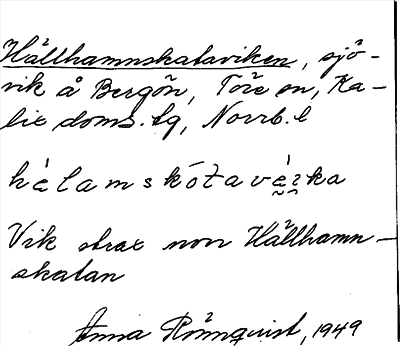 Hällhamnskataviken, sjö-
vik å Bergön, Töre sn, Ka-
lix doms.lg, Norrb.l
hèlamskótavèrka
Vik strax norr Hällhamn-
skatan
Anna Rönnquist, 1949